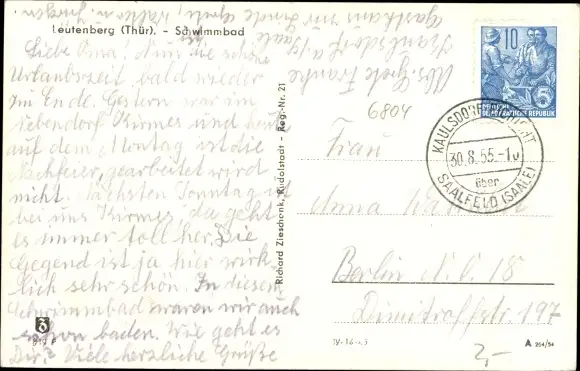 Leutenberg (Thür). - Schwimmbad
Liebe Oma! Nun die schöne
Urlaubszeit bald wieder
zu Ende. Gestern war im
Nebendorf Kirmes und
auf dem Montag ist die
Nachfeier, gearbeitet wird
nicht. Nächsten Sonntag
bei uns Kirmes, da geht
es immer toll her. Die
Gegend ist ja hier wirk
lich sehr schön. In diesem
Schwimmbad waren wir auch
schon baden. Wie geht es
Dir? Viele herzliche Grüße
Grete, Walter u. Jürgen
Abs. Grete Franke
Kaulsdorf a/s Saale
Gasthaus zur Linde
Richard Zieschank, Rudolstadt - Reg.-Nr. 21
10
DEUTSCHE
DEMOKRATISCHE REPUBLIK
5
KAULSDORF
30.8.55.-10
über
SAALFELD (SAALE)
6804
Frau
Anna
Berlin N.O. 18
Dimitroffstr. 197
IV-14-45
A 264/54
2,-